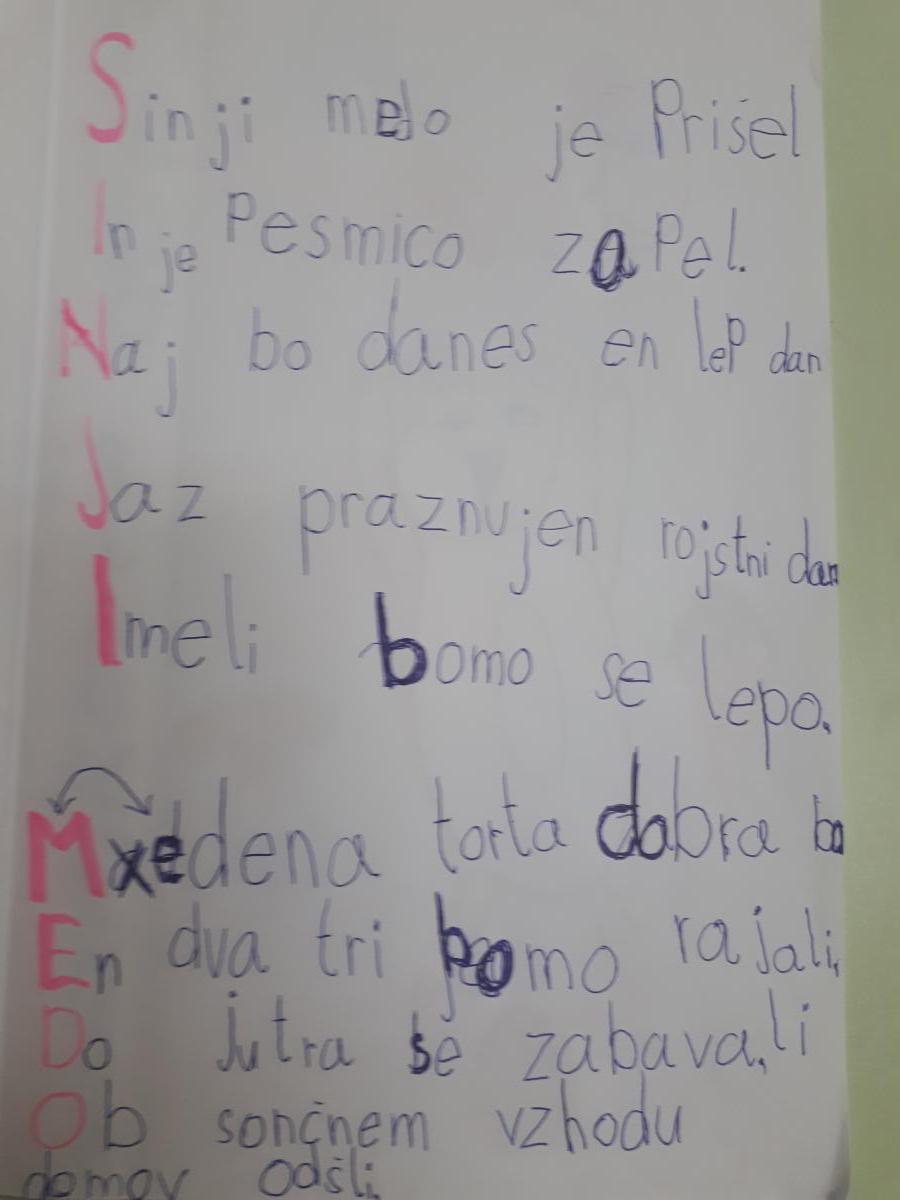 Sinji medo je Prišel
In je Pesmico zaPel.
Naj bo danes en leP dan
Jaz praznujen rojstni dan
Imeli bomo se lepo.
Medena torta dobra bo
En dva tri bomo rajali,
Do jutra se zabavali
Ob sončnem vzhodu
domov odšli.